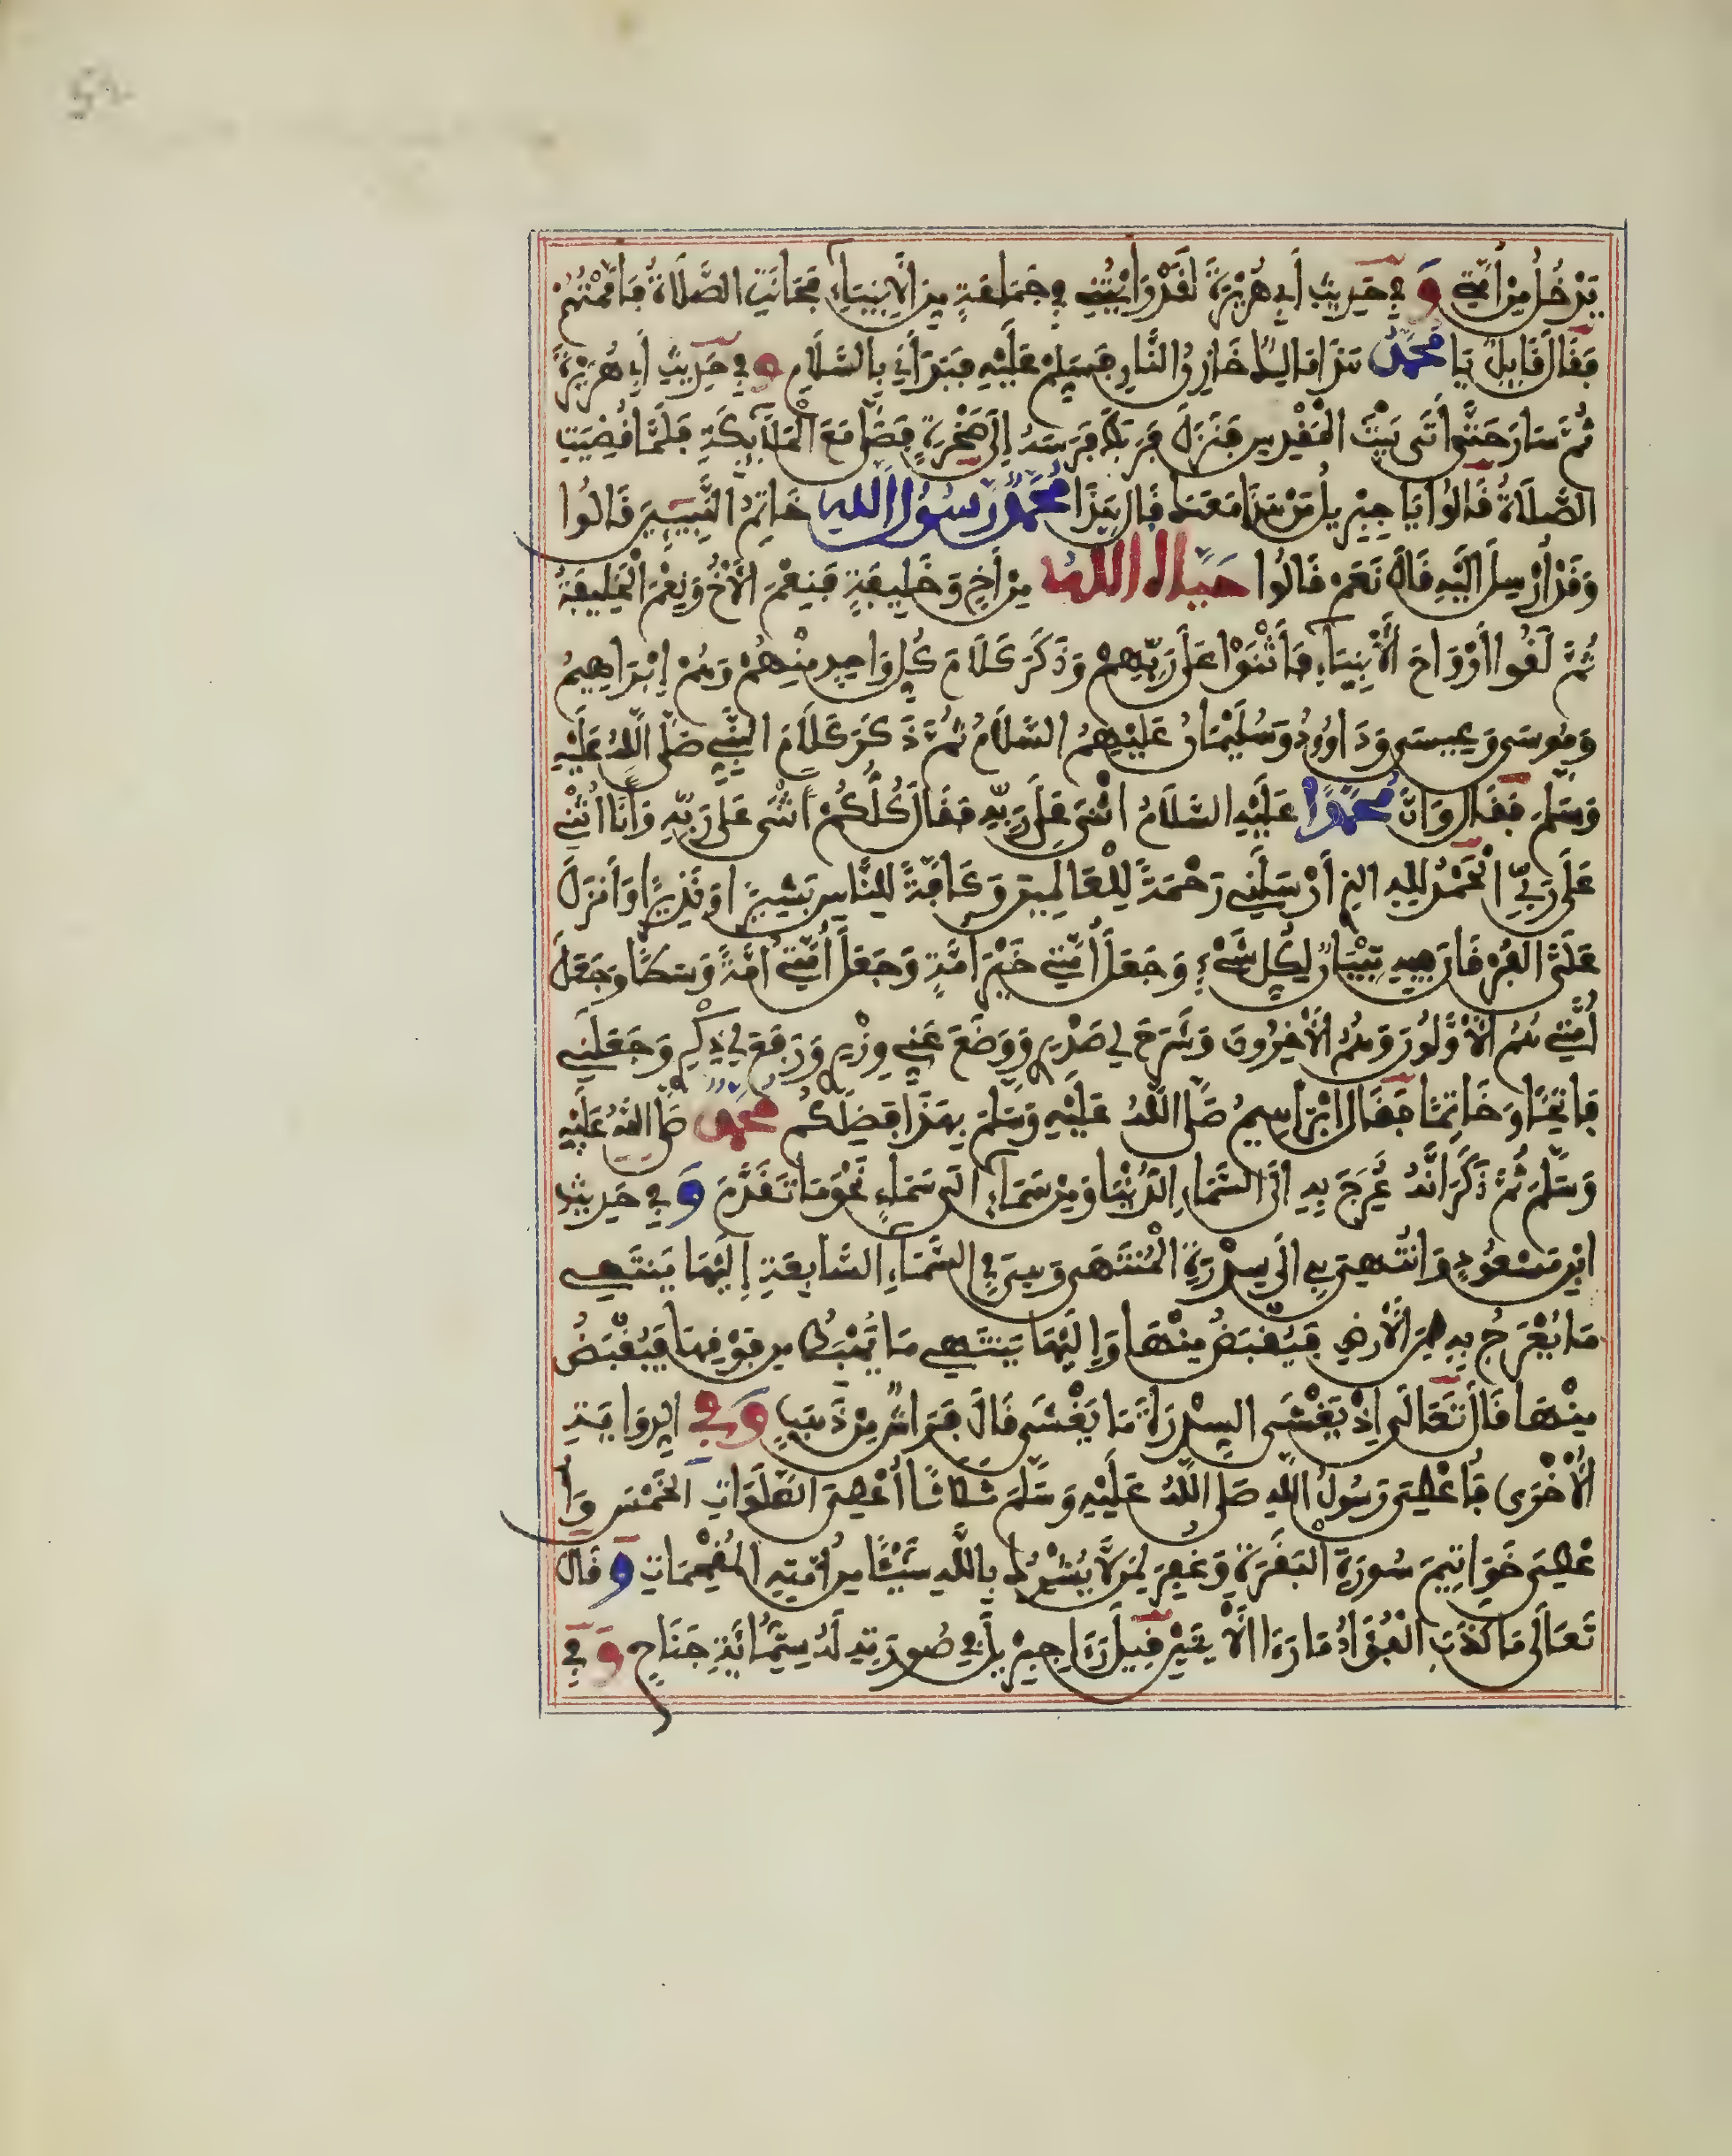 52
يَدْخُلُ مِنْ أُمَّتِي وَفِي حَدِيثِ أَبِي هُرَيْرَةَ لَقَدْ رَأَيْتُنِي فِي جَمَاعَةٍ مِنَ الْأَنْبِيَاءِ فَحَانَتِ الصَّلَاةُ فَأَمَمْتُهُمْ
فَقَالَ قَائِلٌ يَا مُحَمَّدُ هَذَا مَالِكٌ خَازِنُ النَّارِ فَسَلِّمْ عَلَيْهِ فَبَدَأَنِي بِالسَّلَامِ وَفِي حَدِيثِ أَبِي هُرَيْرَةَ
ثُمَّ سَارَ حَتَّى أَتَى بَيْتَ الْمَقْدِسِ فَنَزَلَ فَرَبَطَ فَرَسَهُ إِلَى صَخْرَةٍ فَصَلَّى مَعَ الْمَلَائِكَةِ فَلَمَّا قُضِيَتِ
الصَّلَاةُ قَالُوا يَا جِبْرِيلُ مَنْ هَذَا مَعَكَ قَالَ هَذَا مُحَمَّدٌ رَسُولُ اللهِ خَاتِمُ النَّبِيِّينَ قَالُوا
وَقَدْ أُرْسِلَ إِلَيْهِ قَالَ نَعَمْ قَالُوا حَيَّاهُ اللهُ مِنْ أَخٍ وَخَلِيفَةٍ فَنِعْمَ الْأَخُ وَنِعْمَ الْخَلِيفَةُ
ثُمَّ لَقُوا أَرْوَاحَ الْأَنْبِيَاءِ فَأَثْنَوْا عَلَى رَبِّهِمْ وَذَكَرَ كَلَامَ كُلِّ وَاحِدٍ مِنْهُمْ وَهُمْ إِبْرَاهِيمُ
وَمُوسَى وَعِيسَى وَدَاوُودُ وَسُلَيْمَانُ عَلَيْهِمُ السَّلَامُ ثُمَّ ذَكَرَ كَلَامَ النَّبِيِّ صَلَّى اللهُ عَلَيْهِ
وَسَلَّمَ فَقَالَ وَإِنَّ مُحَمَّدًا عَلَيْهِ السَّلَامُ أَثْنَى عَلَى رَبِّهِ فَقَالَ كُلُّكُمْ أَثْنَى عَلَى رَبِّهِ وَأَنَا أُثْنِي
عَلَى رَبِّي الْحَمْدُ لِلهِ الذِي أَرْسَلَنِي رَحْمَةً لِلْعَالَمِينَ وَكَافَّةً لِلنَّاسِ بَشِيرًا وَنَذِيرًا وَأَنْزَلَ
عَلَيَّ الْفُرْقَانَ فِيهِ تِبْيَانٌ لِكُلِّ شَيْءٍ وَجَعَلَ أُمَّتِي خَيْرَ أُمَّةٍ وَجَعَلَ أُمَّتِي أُمَّةً وَسَطًا وَجَعَلَ
أُمَّتِي هُمُ الْأَوَّلُونَ وَهُمُ الْآخِرُونَ وَشَرَحَ لِي صَدْرِي وَوَضَعَ عَنِّي وِزْرِي وَرَفَعَ لِي ذِكْرِي وَجَعَلَنِي
فَاتِحًا وَخَاتِمًا فَقَالَ إِبْرَاهِيمُ صَلَّى اللهُ عَلَيْهِ وَسَلَّمَ بِهَذَا فَضَلَكُمْ مُحَمَّدٌ صَلَّى اللهُ عَلَيْهِ
وَسَلَّمَ ثُمَّ ذَكَرَ أَنَّهُ عُرِجَ بِهِ إِلَى السَّمَاءِ الدُّنْيَا وَمِنْ سَمَاءٍ إِلَى سَمَاءٍ نَحْوَ مَا تَقَدَّمَ وَفِي حَدِيثِ
ابْنِ مَسْعُودٍ وَانْتُهِيَ بِي إِلَى سِدْرَةِ الْمُنْتَهَى وَهِيَ فِي السَّمَاءِ السَّابِعَةِ إِلَيْهَا يَنْتَهِي
مَا يُعْرَجُ بِهِ مِنَ الْأَرْضِ فَيُقْبَضُ مِنْهَا وَإِلَيْهَا يَنْتَهِي مَا يُهْبَطُ مِنْ فَوْقِهَا فَيُقْبَضُ
مِنْهَا قَالَ تَعَالَى إِذْ يَغْشَى السِّدْرَةَ مَا يَغْشَى قَالَ فَرَاشٌ مِنْ ذَهَبٍ وَفِي الرِّوَايَةِ
الْأُخْرَى فَأُعْطِيَ رَسُولُ اللهِ صَلَّى اللهُ عَلَيْهِ وَسَلَّمَ ثَلَاثًا أُعْطِيَ الصَّلَوَاتِ الْخَمْسَ وَأُ
عْطِيَ خَوَاتِيمَ سُورَةِ الْبَقَرَةِ وَغُفِرَ لِمَنْ لَا يُشْرِكُ بِاللهِ شَيْئًا مِنْ أُمَّتِهِ الْمُقْحِمَاتُ وَقَالَ
تَعَالَى مَا كَذَبَ الْفُؤَادُ مَا رَأَى الْآيَتَيْنِ قِيلَ رَأَى جِبْرِيلَ فِي صُورَتِهِ لَهُ سِتُّمِائَةِ جَنَاحٍ وَفِي